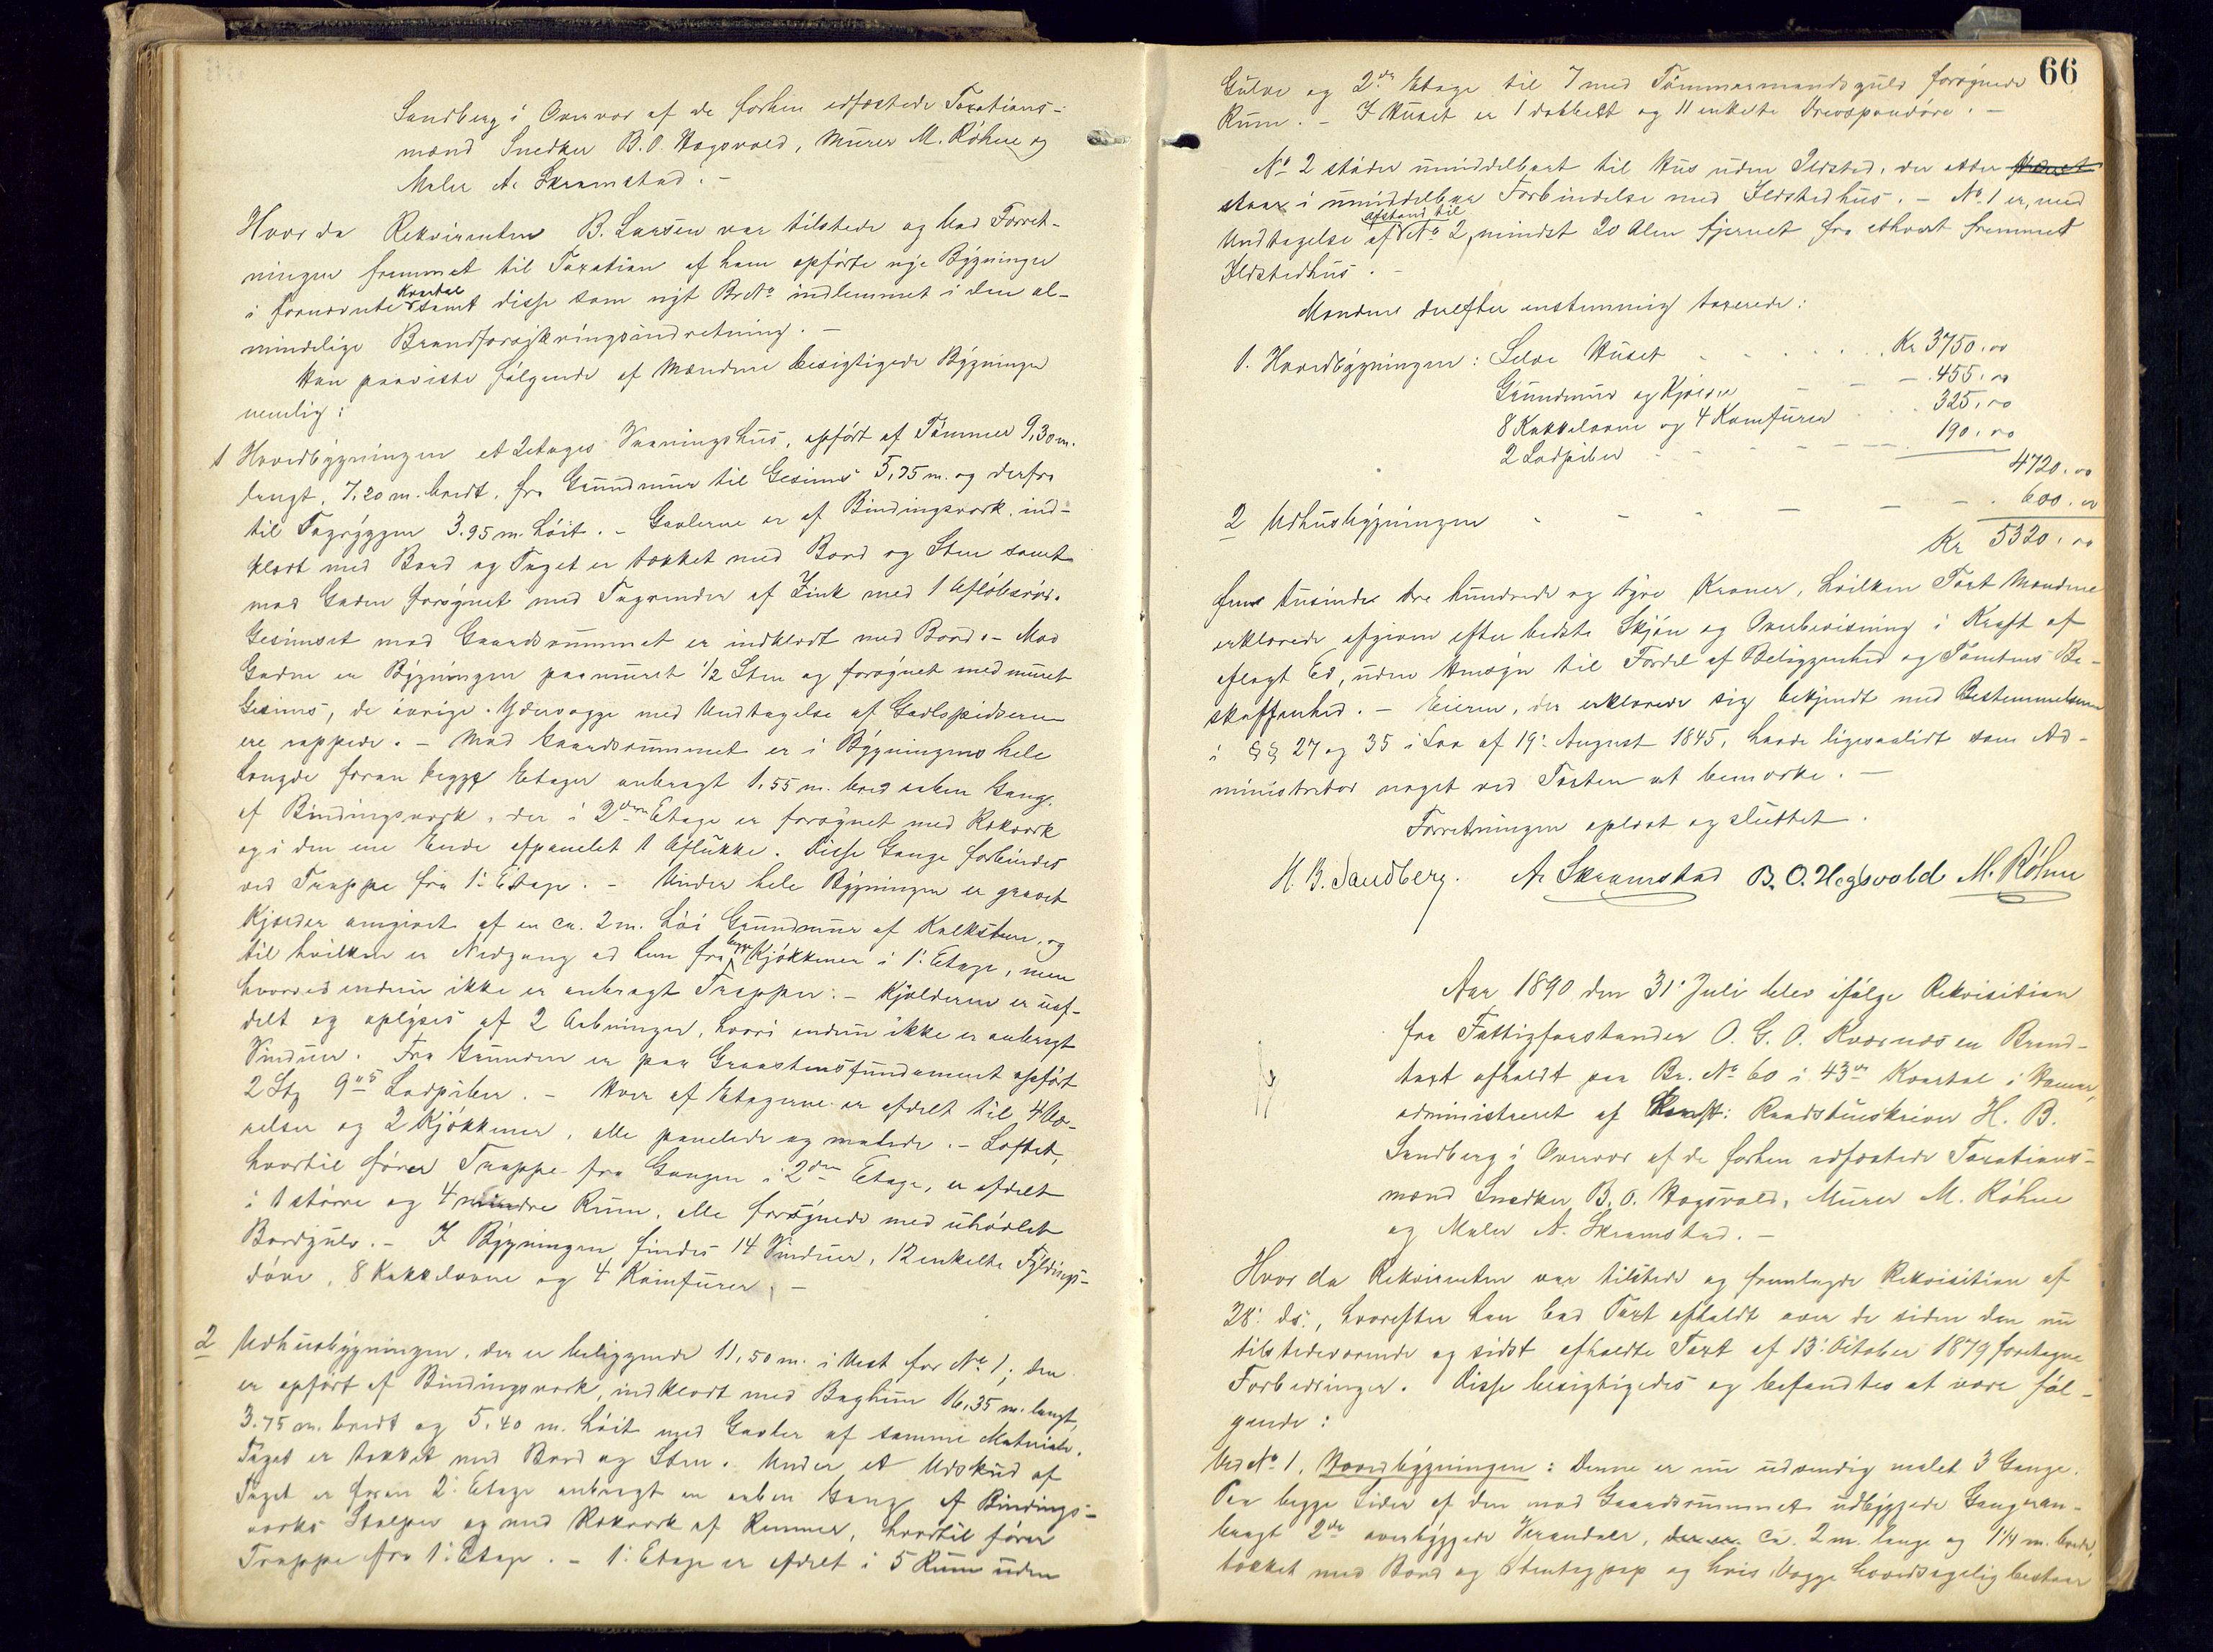 Sandberg i Overvær af de forhen edfæstede Taxations-
mænd Snedker B. O. Hagsvold, Murer M. Röhne og
Maler A. Skramstad. -
Hvor da Rekvirenten B. Larsen var tilstede og bad Forret-
ningen fremmet til Taxation af ham opførte nye Bygninger
i fornævnte Kvartal samt disse som nyt Br No indlemmet i den al-
mindelige Brandforsikringsindretning. -
Han paaviste følgende af Mændene besigtigede Bygninger
nemlig:
1 Hovedbygningen et 2etages Vaaningshus, opført af Tømmer 9,30 m.
langt, 7,20 m. bredt, fra Grundmur til Gesims 5,75 m. og derfra
til Tagryggen 3.95 m. høit. - Gavlerne er af Bindingsværk, ind-
klædt med Bord og Taget er tækket med Bord og Sten samt
mod Gaden forsynet med Tagrender af Zink med 1 Afløbsrør.
Gesimset mod Gaardsrummet er indklædt med Bord. - Mod
Gaden er Bygningen paamuret 1/2 Sten og forsynet med muret
Gesims, de øvrige Ydervægge med Undtagelse af Gavlspidserne
ere rappede. - Mod Gaardsrummet er i Bygningens hele
Længde foran begge Etager anbragt 1,55 m. bred aaben Gang
af Bindingsværk, der i 2den Etage er forsynet med Rækværk
og i den ene Ende afpanelet 1 Aflukke. Disse Gange forbindes
ved Trappe fra 1: Etage. - Under hele Bygningen er gravet
Kjælder omgivet af en ca. 2 m. høi Grundmur af Kalksten, og
til hvilken er Nedgang ad Lem fra begge Kjøkkener i 1: Etage, men
hvorved endnu ikke er anbragt Trapper. - Kjælderen er uaf-
delt og oplyses af 2 Aabninger, hvori endnu ikke er anbragt
Vinduer. Fra Grunden er paa Graastensfundament opført
2 Stk 9" Ladpiber. - Hver af Etagerne er afdelt til 4 Væ-
relser og 2 Kjøkkener, alle panelede og malede. - Loftet,
hvortil fører Trappe fra Gangen i 2den Etage, er afdelt
i 1 større og 4 mindre Rum, alle forsynede med uhøvlet
Bordgulv. - I Bygningen findes 14 Vinduer, 12 enkelte Fyldings-
døre, 8 Kakkelovne og 4 Komfurer. -
2 Udhusbygningen, der er beliggende 11,50 m. i Vest for No 1; den
er opført af Bindingsværk, indklædt med Baghun 16,35 m. langt,
3.75 m. bredt og 5,40 m. høit med Gavler af samme Materiale.
Taget er tækket med Bord og Sten. Under et Udskud af
Taget er foran 2: Etage anbragt en aaben Gang af Bindings-
værks Stolper og med Rækværk af Rammer, hvortil fører
Trappe fra 1: Etage. - 1: Etage er afdelt i 5 Rum uden
66
Gulve og 2den Etage til 7 med Tømmermandsgulv forsynede
Rum. - I Huset er 1 dobbelt og 11 enkelte Træspondøre. -
No 2 støder umiddelbart til Hus uden Ildsted, der atter
staar i umiddelbar Forbindelse med Ildstedhus. - No 1 er, med
Undtagelse af afstand til No 2, mindst 20 Alen fjernet fra ethvert fremmed
Ildstedhus. -
Mændene derefter enstemmig taxerede:
1. Hovedbygningen: Selve Huset - - - Kr 3750.00
Grundmur og Kjælder - - - 455.00
8 Kakkelovne og 4 Komfurer - - 325.00
2 Ladpiber - - - - 190.00
4720.00
2 Udhusbygningen - - - - - 600.00
Kr 5320.00
fem tusinde tre hundrede og tyve Kroner, hvilken Taxt Mændene
erklærede afgiven efter bedste Skjøn og Overbevisning i Kraft af
aflagt Ed, uden Hensyn til Fordel af Beliggenhed og Tomtens Be-
skaffenhed. - Eieren, der erklærede sig bekjendt med Bestemmelserne
i §§ 27 og 35 i Lov af 19: August 1845, havde ligesaalidt som Ad-
ministrator noget ved Taxten at bemærke. -
Forretningen oplæst og sluttet.
H. B. Sandberg. A. Skramstad B. O. Hagsvold M. Röhne
Aar 1890 den 31: Juli blev ifølge Rekvisition
fra Fattigforstander O. G. O. Kværnæs en Brand-
taxt afholdt paa Br. No 60 i 43de Kvartal i Hamar,
administreret af Raadstueskriver H. B.
Sandberg i Overvær af de forhen edfæstede Taxations-
mænd Snedker B. O. Hagsvold, Murer M. Röhne
og Maler A. Skramstad. -
Hvor da Rekvirenten var tilstede og fremlagde Rekvisition af
28: ds., hvorefter han bad Taxt afholdt over de siden den nu
tilstedeværende og sidst afholdte Taxt af 13: Oktober 1879 foretagne
Forbedringer. Disse besigtigedes og befandtes at være føl-
gende:
Ved No 1, Hovedbygningen: Denne er nu udvendig malet 3 Gange.
Paa begge Sider af den mod Gaardsrummet udbyggede Gang er an-
bragt 2de overbyggede Verandaer, ca. 2 m. lange og 1 1/4 m. brede,
tækket med Bord og Stentagpap og hvis Vægge hovedsagelig bestaar